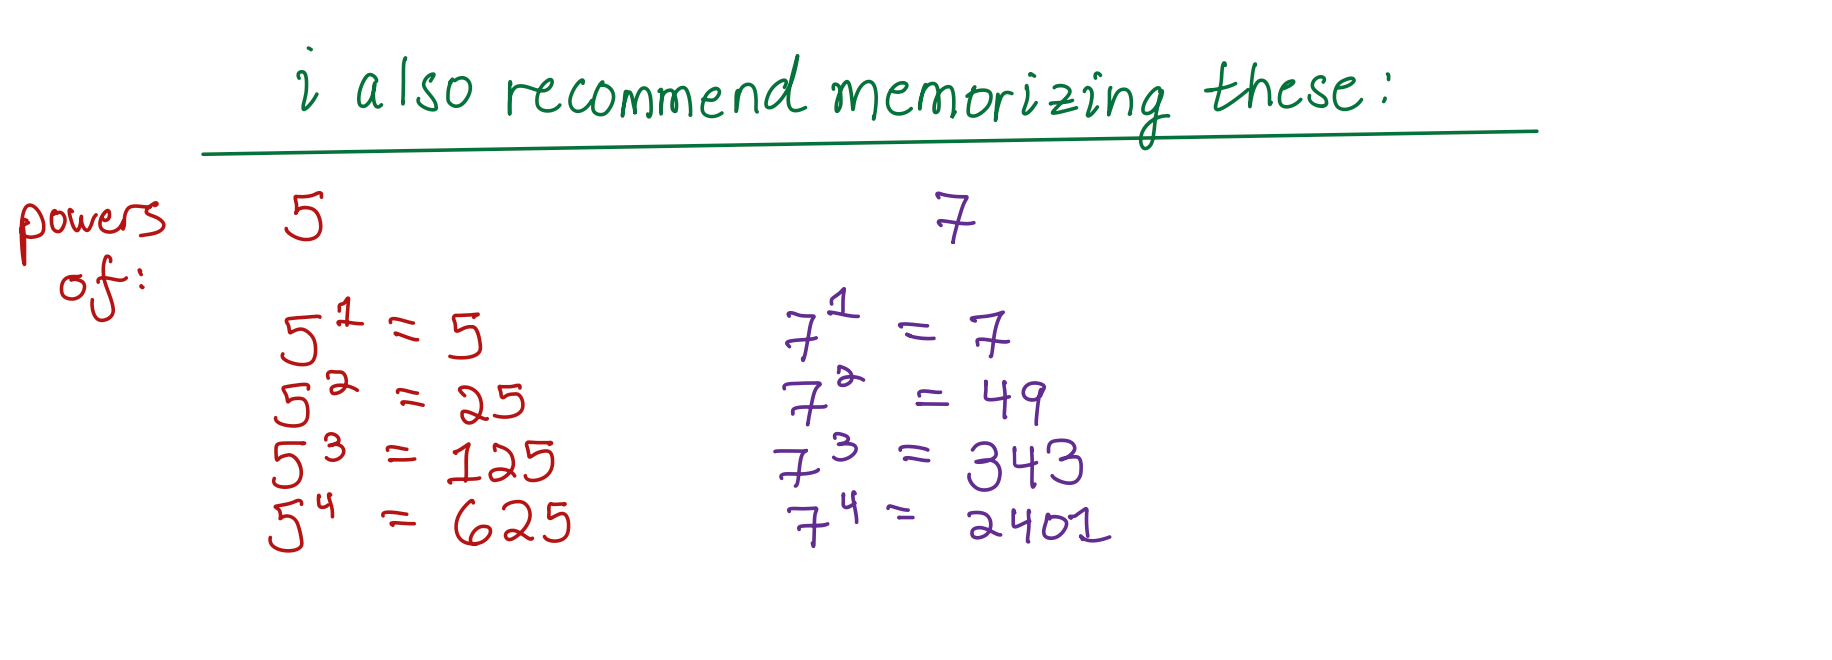 i also recommend memorizing these:
powers of: 5 7
5^1 = 5 7^1 = 7
5^2 = 25 7^2 = 49
5^3 = 125 7^3 = 343
5^4 = 625 7^4 = 2401